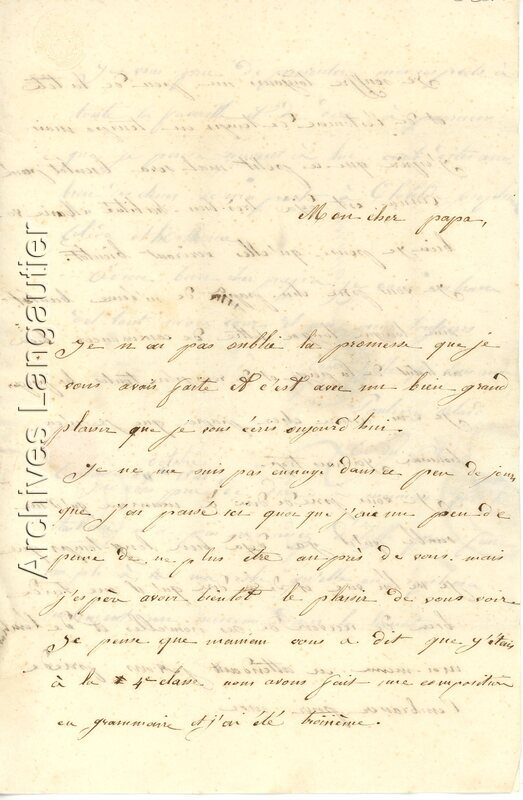 Mon cher papa,
Je n'ai pas oublié la promesse que je
vous avais faite et c'est avec un bien grand
plaisir que je vous écris aujourd'hui.
Je ne me suis pas ennuyé dans ce peu de jours
que j'ai passé ici quoi que j'aie un peu de
peine de ne plus être auprès de vous. mais
j'espère avoir bientôt le plaisir de vous voir
Je pense que maman vous a dit que j'étais
à la 4e classe nous avons fait une composition
en grammaire et j'ai été troisième.
Archives Langautier